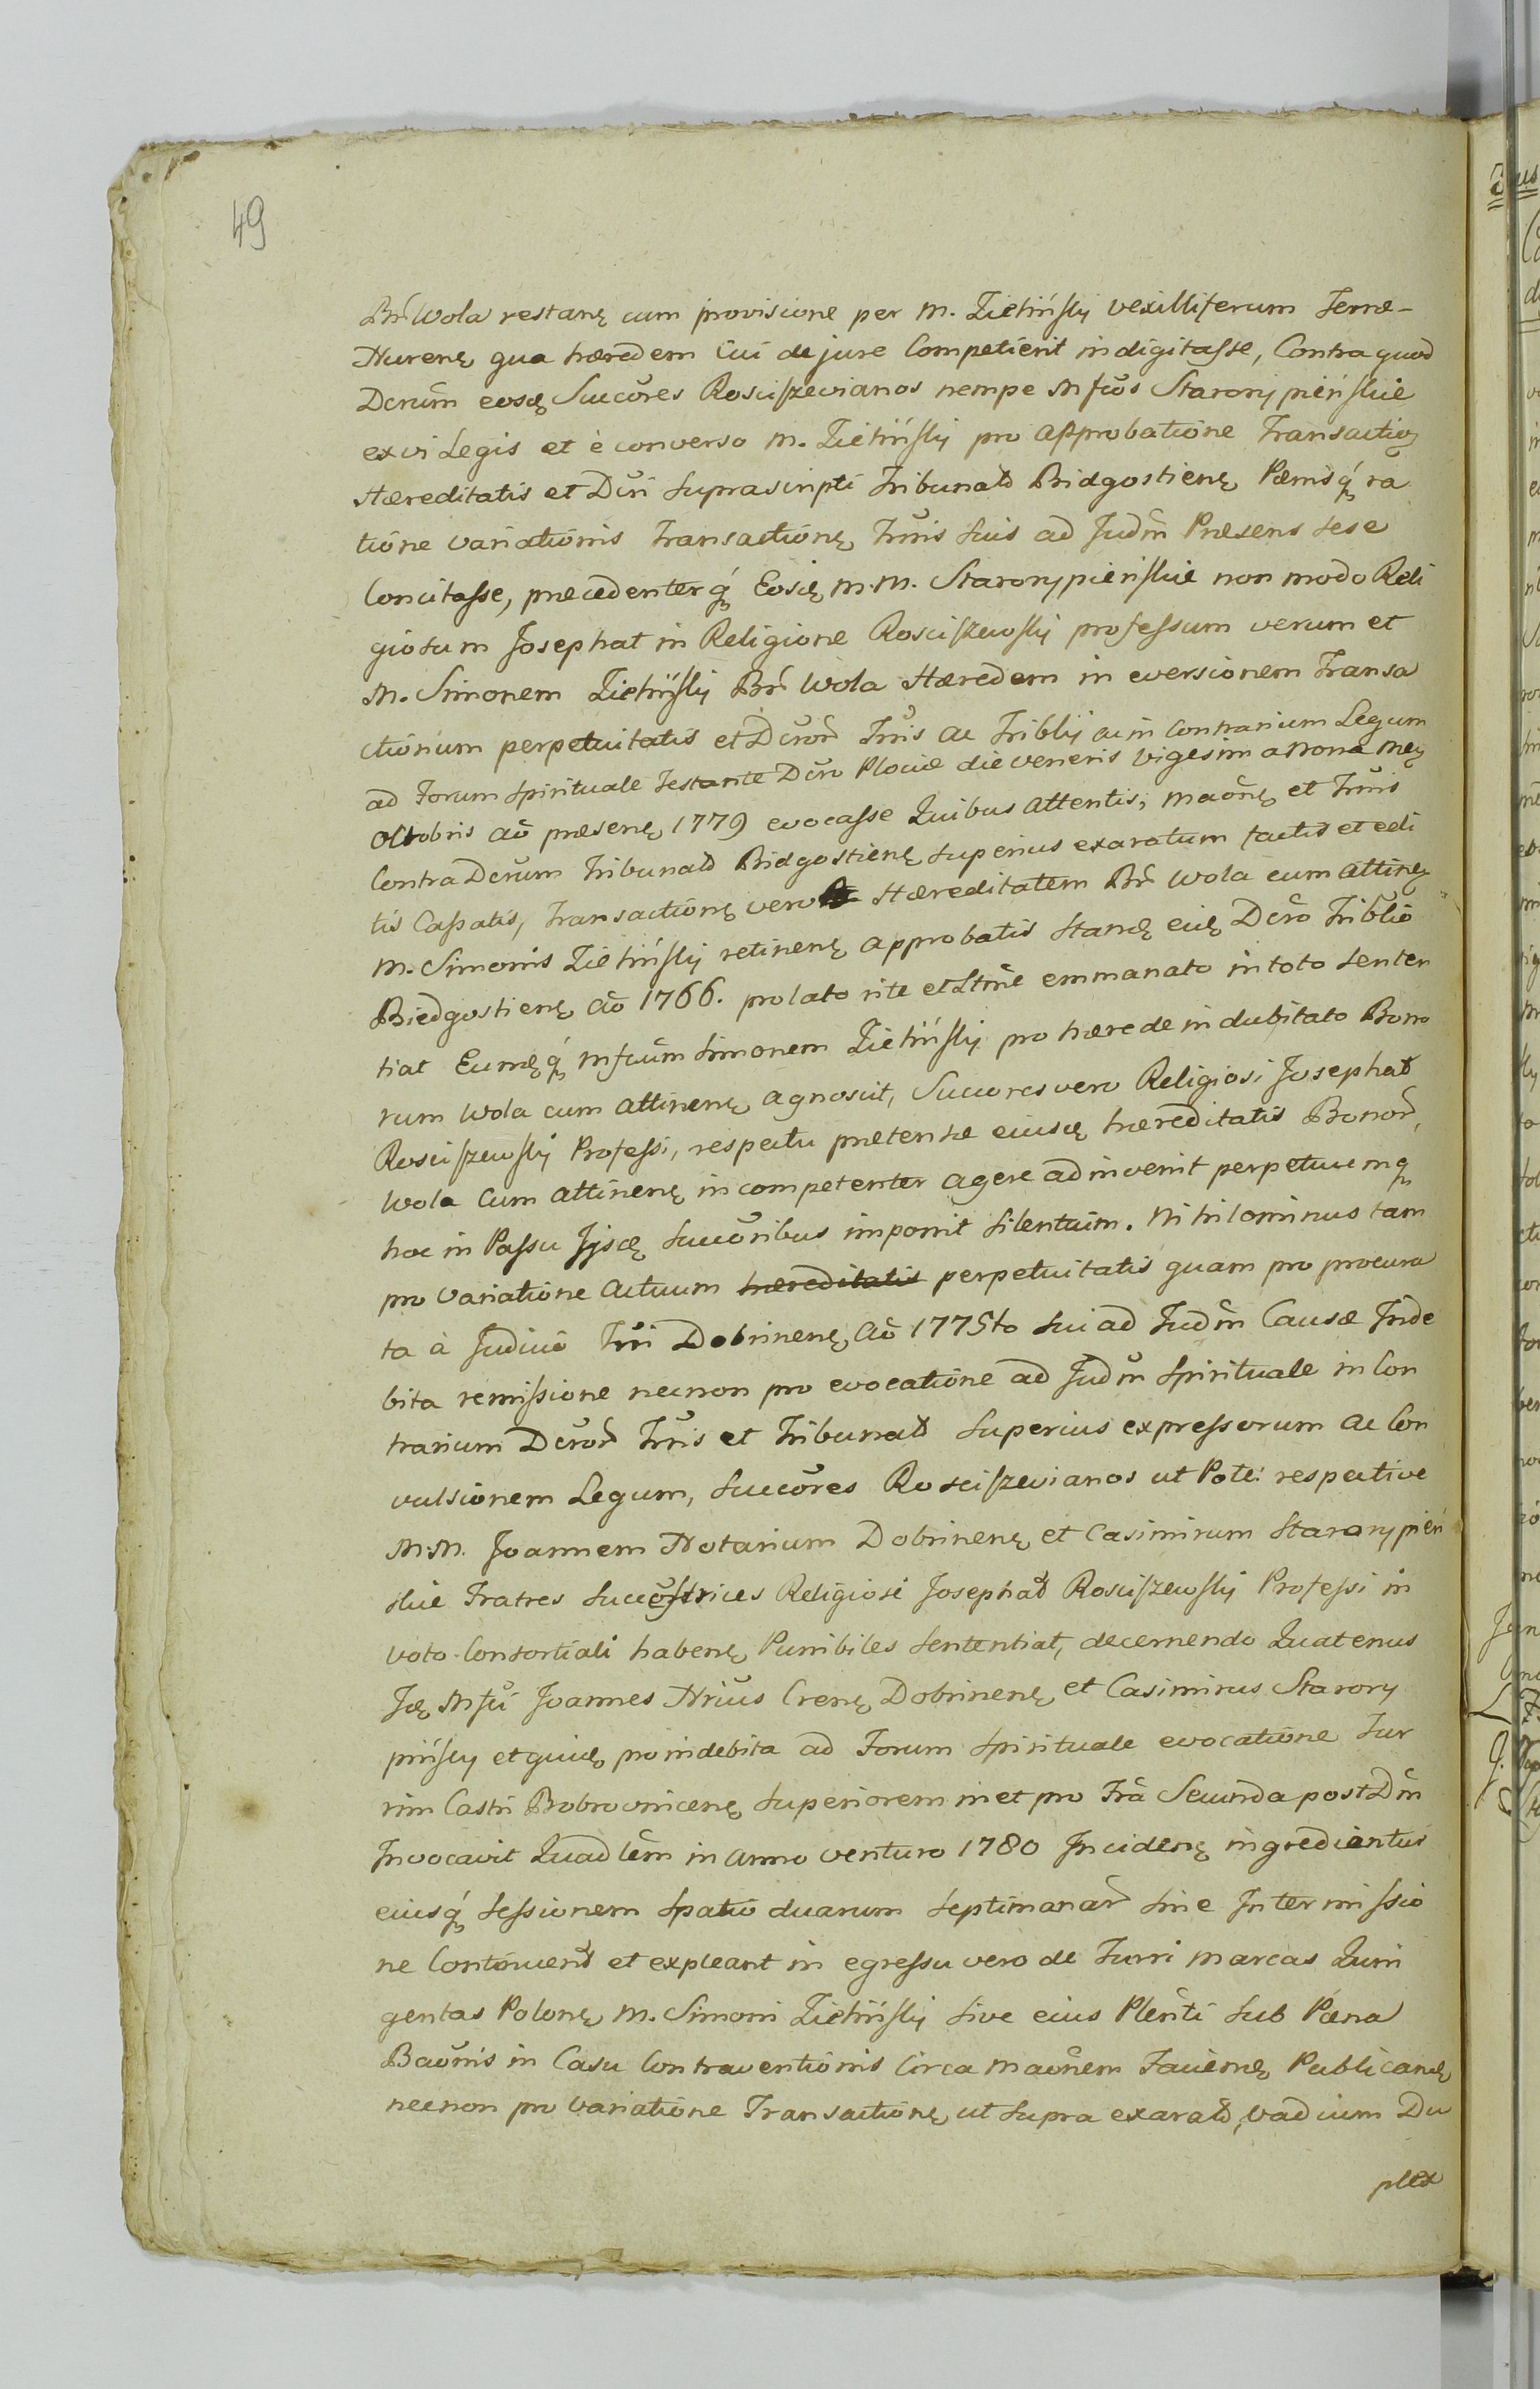 49
Br̃ Wola restanę cum provisione per M. Zieliński vexilliferum Terræ-
Nurenę qua hæredem Cui de jure Competierit indigitasse, Contra quod
Dcrũm eosdę Succõres Rosciszevianos nempe Mfcõs Starorypieńskie
ex vi Legis et è converso M. Zieliński pro approbatione Transactioę
Hæreditatis et Dcri suprascripti Tribunałs Bridgostienę Pæmisq́ʒ ra
tione variationis Transactionę Trris suis ad Judm̃ Præsens sese
Concitasse, præcedenterq́ʒ Eosdę M.M. Starorypieńskie non modo Reli
giosum Josephat in Religione Rosciszewski professum verum et
M. Simonem Zieliński Br̃ Wola Hæredem in eversionem Transa
ctionum perpetuitatis et Dcror̃ Trris ac Triblij ac in contrarium Legum
ad Forum Spirituale Testante Dcro Plociæ die veneris Vigesima Nona Meņ
octobris aõ præsenę 1779 evocasse Quibus attentis, maõnę et Trris
Contra Dcrum Tribunałs Bidgostienę superius exaratum factis et edi
tis Cassatis, Transactionę vero Hæreditatem Br̃ Wola cum attinę
M. Simonis Zieliński retinenę approbatis stanę eiuę Dcro Triblio
Biedgostienę aõ 1766. prolato rite et Lttmẽ emmanato in toto senten
tiat Eumęq́ʒ Mfcum Simonem Zieliński pro hærede indubitato Bono
rum Wola cum attinenę agnoscit, Succores vero Religiosi Josephat
Rosciszewski Professi, respectu prætensæ eiusdę hæreditatis Bonor̃,
Wola cum attinenę incompetenter agere adinvenit perpetuumqʒ
hoc in Passu Ijsdę Succõribus imponit silentium. Nihilominus tam
pro variatione actuum hæreditatis perpetuitatis quam pro procura
ta à Judicio Trri Dobrinenę aõ 1775to sui ad Judm̃ Causæ Inde
bita remissione necnon pro evocatione ad Judm̃ Spirituale in Con
trarium Dcror̃ Trris et Tribunałs superius expressorum ac Con
vulsionem Legum, Succõres Rosciszevianos ut Pote: respective
M.M. Joannem Notarium Dobrinenę et Casimirum Starorypień
skie Fratres Succestrices Religiosi Josephat Rosciszewski Professi in
voto Consortiali habenę Punibiles sententiat, decernendo Quatenus
Idę Mfci Joannes Nrius Crenę Dobrinenę et Casimirus Starory
piński et quidę pro indebita ad Forum Spirituale evocatione Tur
rim Castri Bobrovnicenę superiorem in et pro Fra Secunda post Dm̃
Invocavit Quadlem in anno venturo 1780 Incidenę ingrediantur
eiusq́ʒ sessionem spatio duarum septimanar̃ sine Intermissio
ne Continuent et expleant in egressu vero de Turri marcas Quin
gentas Polonę M. Simoni Zieliński sive eius Plenti sub Pæna
Baõnis in Casu Contraventionis Circa maõnem Faciemę Publicandę
necnon pro variatione Transactionę ut supra exarał, vadium Du
plex